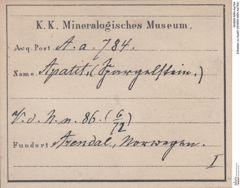 K. K. Mineralogisches Museum.
Acq. Post A. a. 784.
Name Apatit. (Spargelstein.)
V. d. N. n. 86. (6/72)
Fundort Arendal, Norwegen.
I